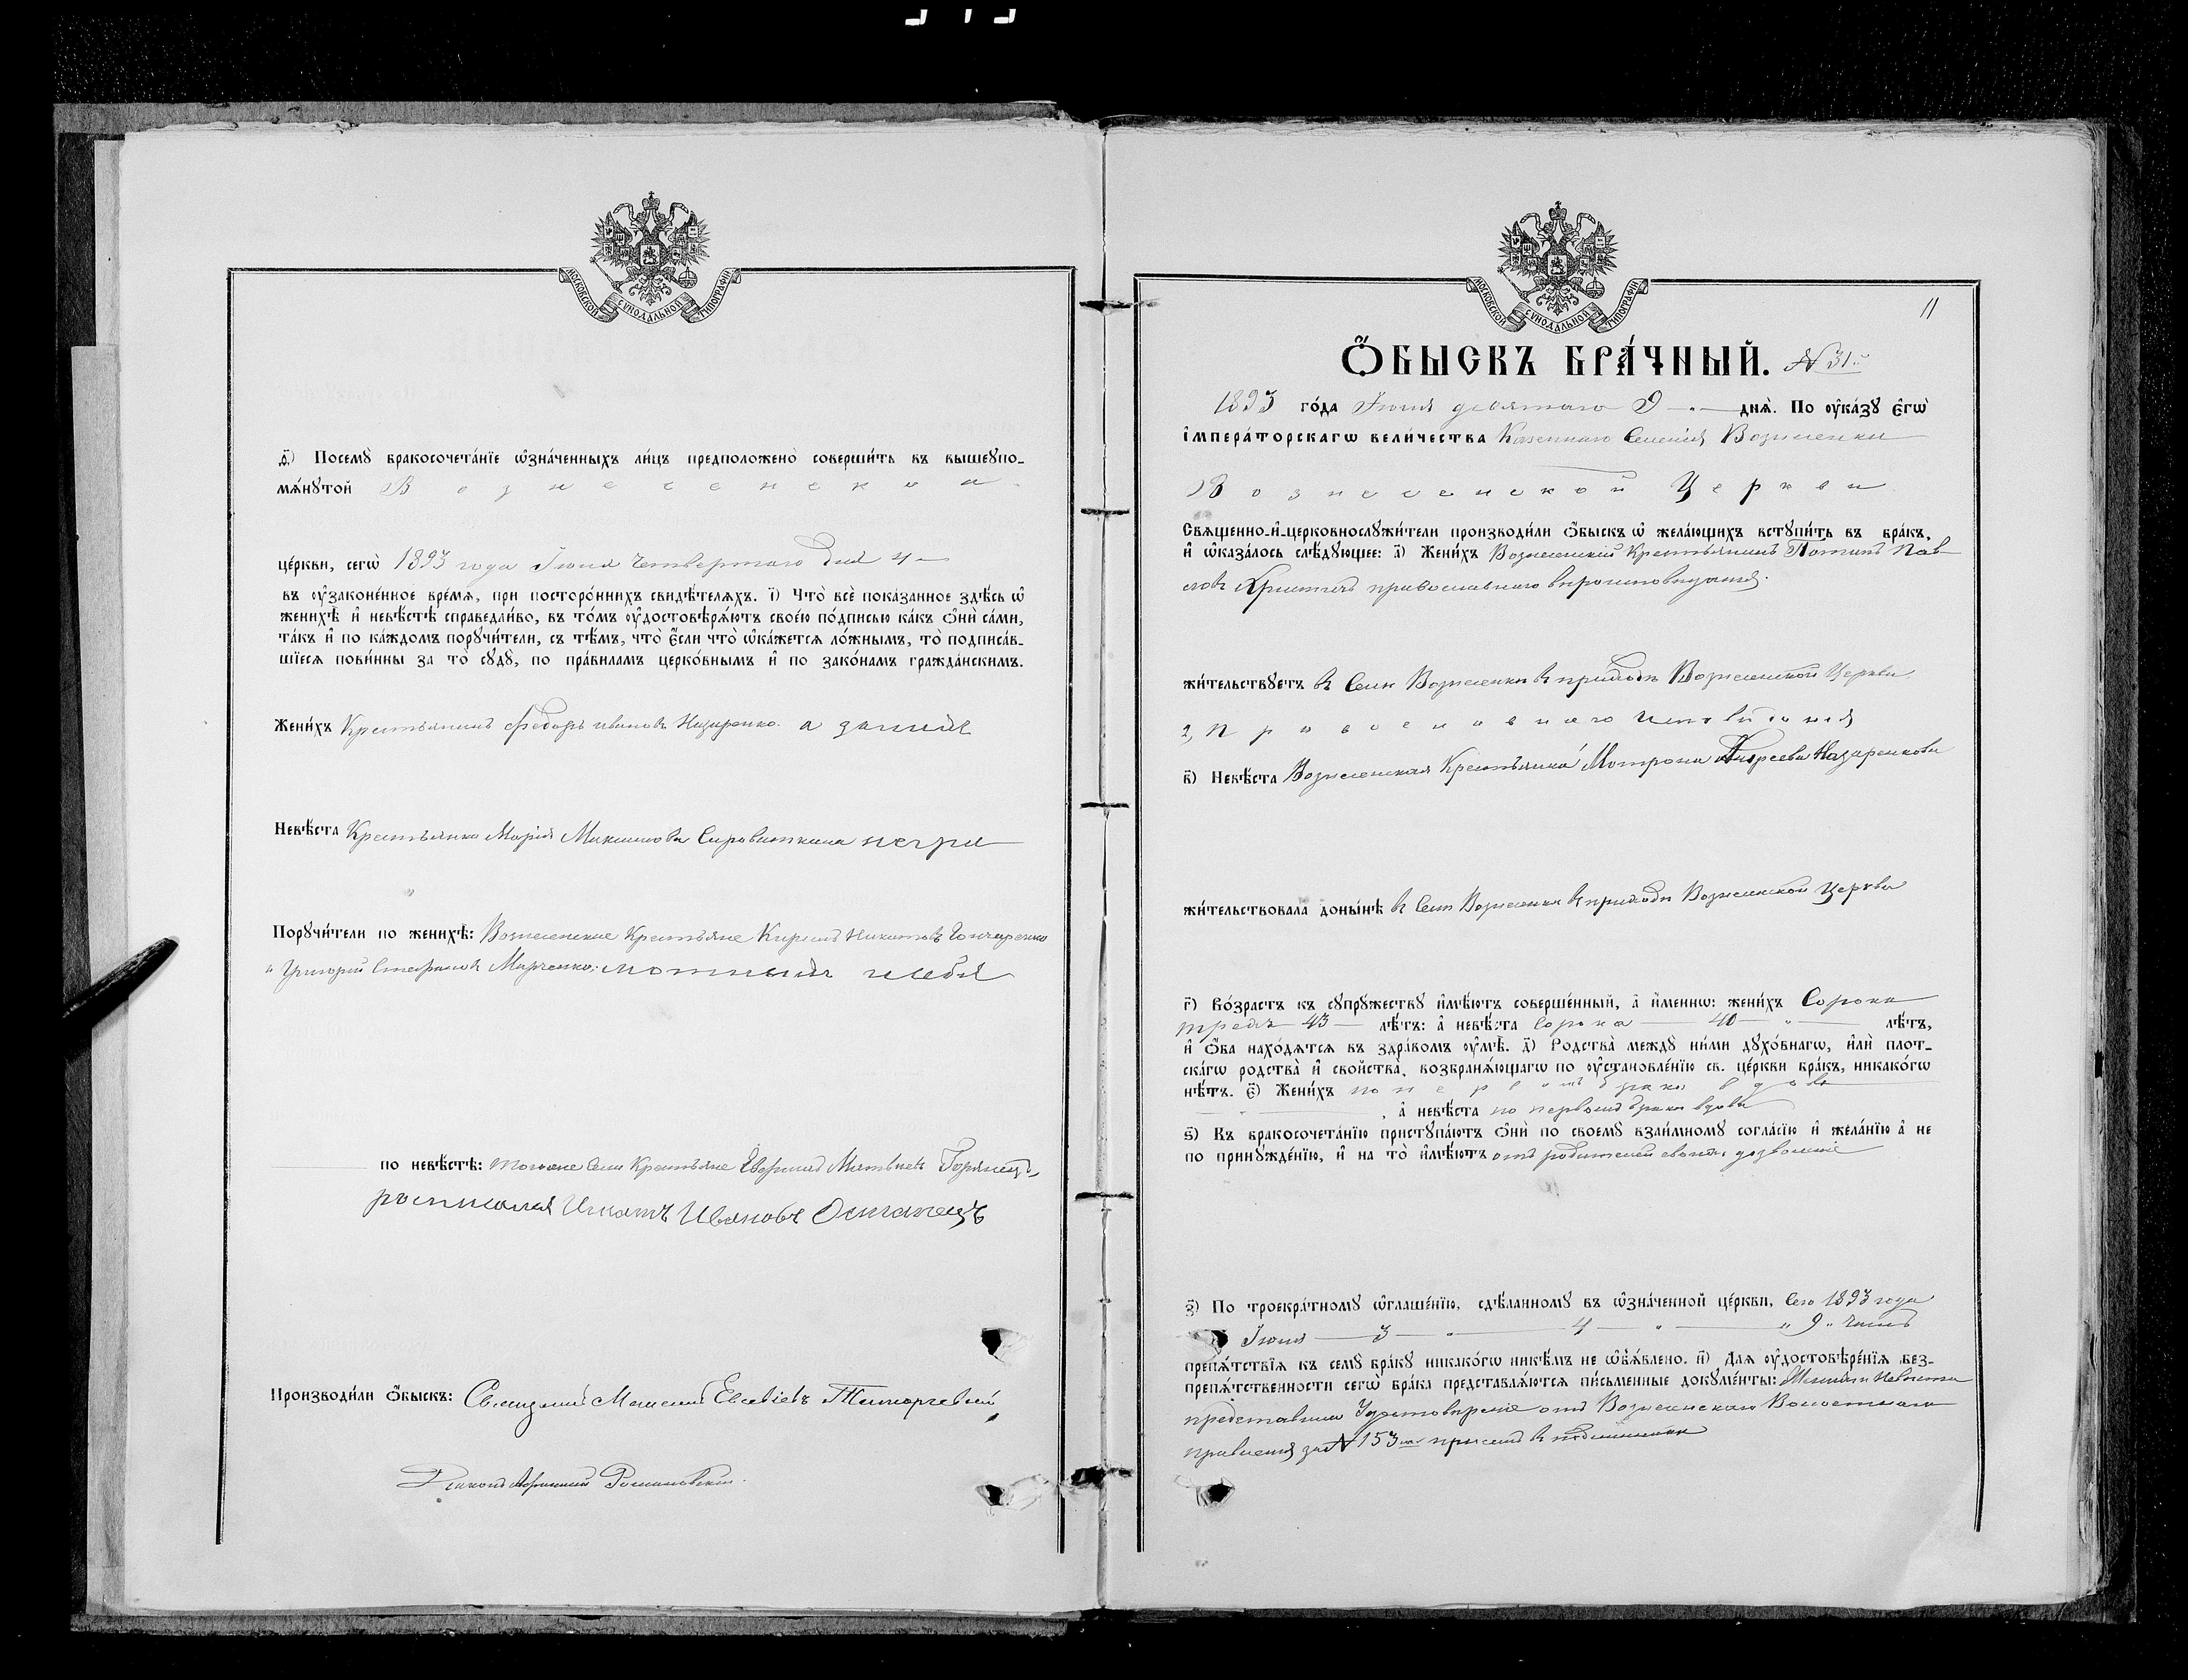 МОСКОВСКОЙ СѴНОДАЛЬНОЙ ТИПОГРАФІИ
д҃і) Посемꙋ бракосочета́нїе ѡ҆зна́ченныхъ ли́цъ предположено̀ соверши́ть въ вышеꙋпо-
мѧ́нꙋтой Вознесенской
це́ркви, сегѡ̀ 1893 года Іюня четвертаго дня 4 —
въ ᲂу҆законе́нное вре́мѧ, при посторо́ннихъ свидѣ́телѧхъ. і҃) Что̀ всѐ пока́занное здѣ́сь ѡ҆
женихѣ̀ и҆ невѣ́стѣ справедли́во, въ то́мъ ᲂу҆достовѣрѧ́ютъ свое́ю по́дписью ка́къ ѻ҆нѝ са́ми,
та́къ и҆ по ка́ждомъ порꙋчи́тели, съ тѣ́мъ, что̀ є҆́сли что̀ ѡ҆ка́жетсѧ ло́жнымъ, то̀ подписа́в-
шїесѧ пови́нны за то̀ сꙋдꙋ̀, по пра́виламъ церко́внымъ и҆ по зако́намъ гражда́нскимъ.
Жени́хъ Крестьянинъ Федоръ Ивановъ Назаренко. а за ниxъ
Невѣ́ста Крестьянка Марія Максимова Сыроваткина негра
Порꙋчи́тели по женихѣ̀: Вознесенскіе Крестьяне Кирилъ Никитовъ Гончаренко
и Григорій Стефановъ Марченко,
по невѣ́стѣ: тогоже Села Крестьяне Матвѣевъ
росписался Игнатъ Ивановъ Остапецъ
Производи́ли ѻ҆́быскъ: Священникъ
Діаконъ Романовскій.
МОСКОВСКОЙ СѴНОДАЛЬНОЙ ТИПОГРАФІИ
11
Ѻ҆́БЫСКЪ БРА́ЧНЫЙ. № 31й
1893 го́да Іюня девятаго 9 — днѧ̀. По ᲂу҆ка́зꙋ є҆гѡ̀
і҆мпера́торскагѡ вели́чества Казеннаго Селенія Вознесенки
Вознесенской Церкви
Свѧще́нно-и҆-церковнослꙋжи́тели производи́ли ѻ҆́быскъ ѡ҆ жела́ющихъ встꙋпи́ть въ бра́къ,
и҆ ѡ҆каза́лось слѣ́дꙋющее: а҃) Жени́хъ Вознесенскій Крестьянинъ Потапъ Пав-
ловъ православнаго вѣроисповѣданія.
жи́тельствꙋетъ въ Селѣ Вознесенки въ приходѣ Вознесенской Церкви
2, Православнаго Исповѣданія
в҃) Невѣ́ста Вознесенская Крестьянка Матрона Андреева Назаренкова
жи́тельствовала доны́нѣ въ Селѣ Вознесенки въ приходѣ Вознесенской Церкви
г҃) Во́зрастъ къ сꙋпрꙋ́жествꙋ и҆мѣ́ютъ соверше́нный, а҆ и҆́меннѡ: жени́хъ Сорока
трехъ 43 — лѣ́тъ: а҆ невѣ́ста Сорока — 40 — лѣ́тъ,
и҆ ѻ҆́ба нахо́дѧтсѧ въ здра́вомъ ᲂу҆мѣ̀. д҃) Родства̀ междꙋ ни́ми дꙋхо́внагѡ, и҆лѝ плот-
ска́гѡ родства̀ и҆ сво́йства, возбранѧ́ющагѡ по ᲂу҆становле́нїю св. це́ркви бра́къ, никако́гѡ
нѣ́тъ. є҃) Жени́хъ по первомъ браки вдовъ
, а҆ невѣ́ста по первомъ браки вдова
ѕ҃) Къ бракосочета́нїю пристꙋпа́ютъ ѻ҆нѝ по своемꙋ̀ взаи́мномꙋ согла́сїю и҆ жела́нїю а҆ не
по принꙋжде́нїю, и҆ на то̀ и҆мѣ́ютъ отъ родителей своихъ дозволеніе
з҃) По троекра́тномꙋ ѡ҆глаше́нїю, сдѣ́ланномꙋ въ ѡ҆зна́ченной це́ркви, Сего 1893 года
Іюня — 3 — 4 — 9 числъ
препѧ́тствїѧ къ семꙋ̀ бра́кꙋ никако́гѡ никѣ́мъ не ѡ҆б̾ѧ́влено. и҃) Длѧ ᲂу҆достовѣре́нїѧ без-
препѧ́тственности сегѡ̀ бра́ка представлѧ́ютсѧ пи́сьменные докꙋме́нты: Женихъ и Невѣста
представили Удостовѣреніе отъ Вознесенскаго Волостнаго
правленія за № 153мъ